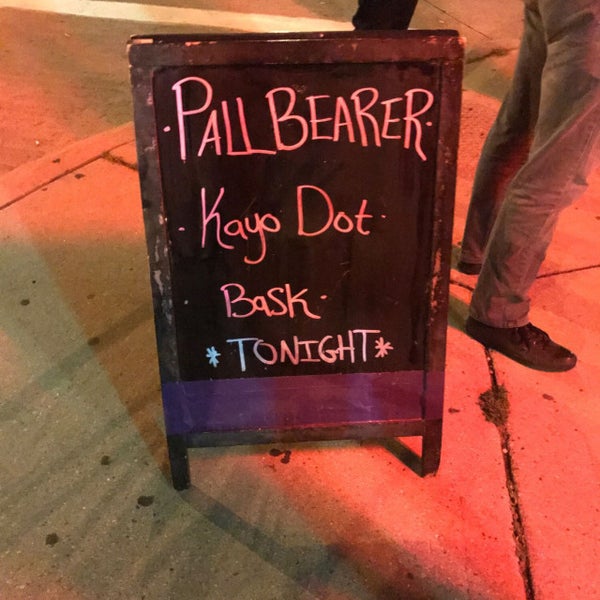 ·PALLBEARER·
·Kayo Dot·
Bask·
*TONIGHT*